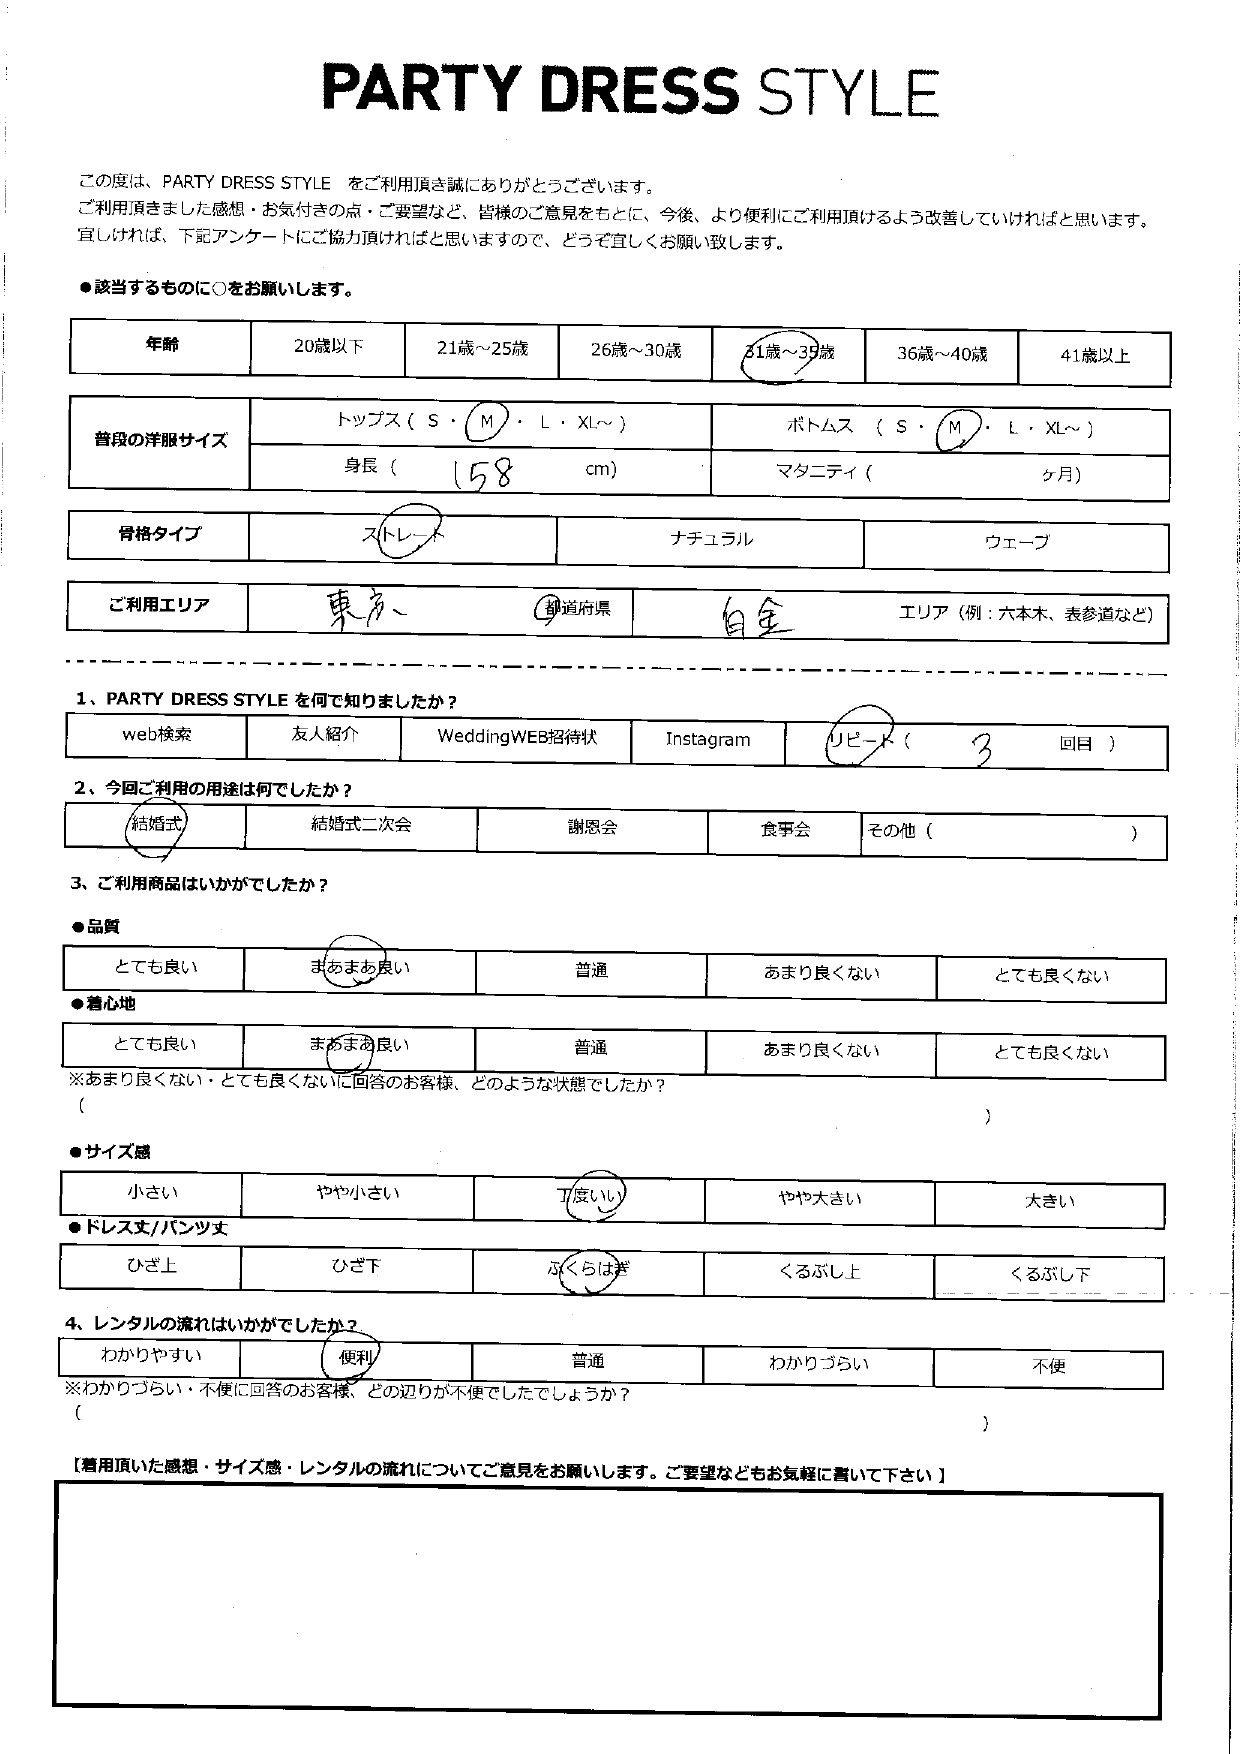 PARTY DRESS STYLE
この度は、PARTY DRESS STYLE をご利用頂き誠にありがとうございます。
ご利用頂きました感想・お気付きの点・ご要望など、皆様のご意見をもとに、今後、より便利にご利用頂けるよう改善していければと思います。
宜しければ、下記アンケートにご協力頂ければと思いますので、どうぞ宜しくお願い致します。
●該当するものに○をお願いします。
年齢 20歳以下 21歳～25歳 26歳～30歳 31歳～35歳 36歳～40歳 41歳以上
普段の洋服サイズ トップス ( S ・ M ・ L ・ XL～ ) ボトムス ( S ・ M ・ L ・ XL～ )
身長 ( 158 cm) マタニティ ( ヶ月)
骨格タイプ ストレート ナチュラル ウェーブ
ご利用エリア 東京 都道府県 白金 エリア（例：六本木、表参道など）
1、PARTY DRESS STYLE を何で知りましたか？
web検索 友人紹介 WeddingWEB招待状 Instagram リピート ( 3 回目 )
2、今回ご利用の用途は何でしたか？
結婚式 結婚式二次会 謝恩会 食事会 その他 ( )
3、ご利用商品はいかがでしたか？
●品質
とても良い まあまあ良い 普通 あまり良くない とても良くない
●着心地
とても良い まあまあ良い 普通 あまり良くない とても良くない
※あまり良くない・とても良くないに回答のお客様、どのような状態でしたか？
( )
●サイズ感
小さい やや小さい 丁度いい やや大きい 大きい
●ドレス丈/パンツ丈
ひざ上 ひざ下 ふくらはぎ くるぶし上 くるぶし下
4、レンタルの流れはいかがでしたか？
わかりやすい 便利 普通 わかりづらい 不便
※わかりづらい・不便に回答のお客様、どの辺りが不便でしたでしょうか？
( )
【着用頂いた感想・サイズ感・レンタルの流れについてご意見をお願いします。ご要望などもお気軽に書いて下さい】